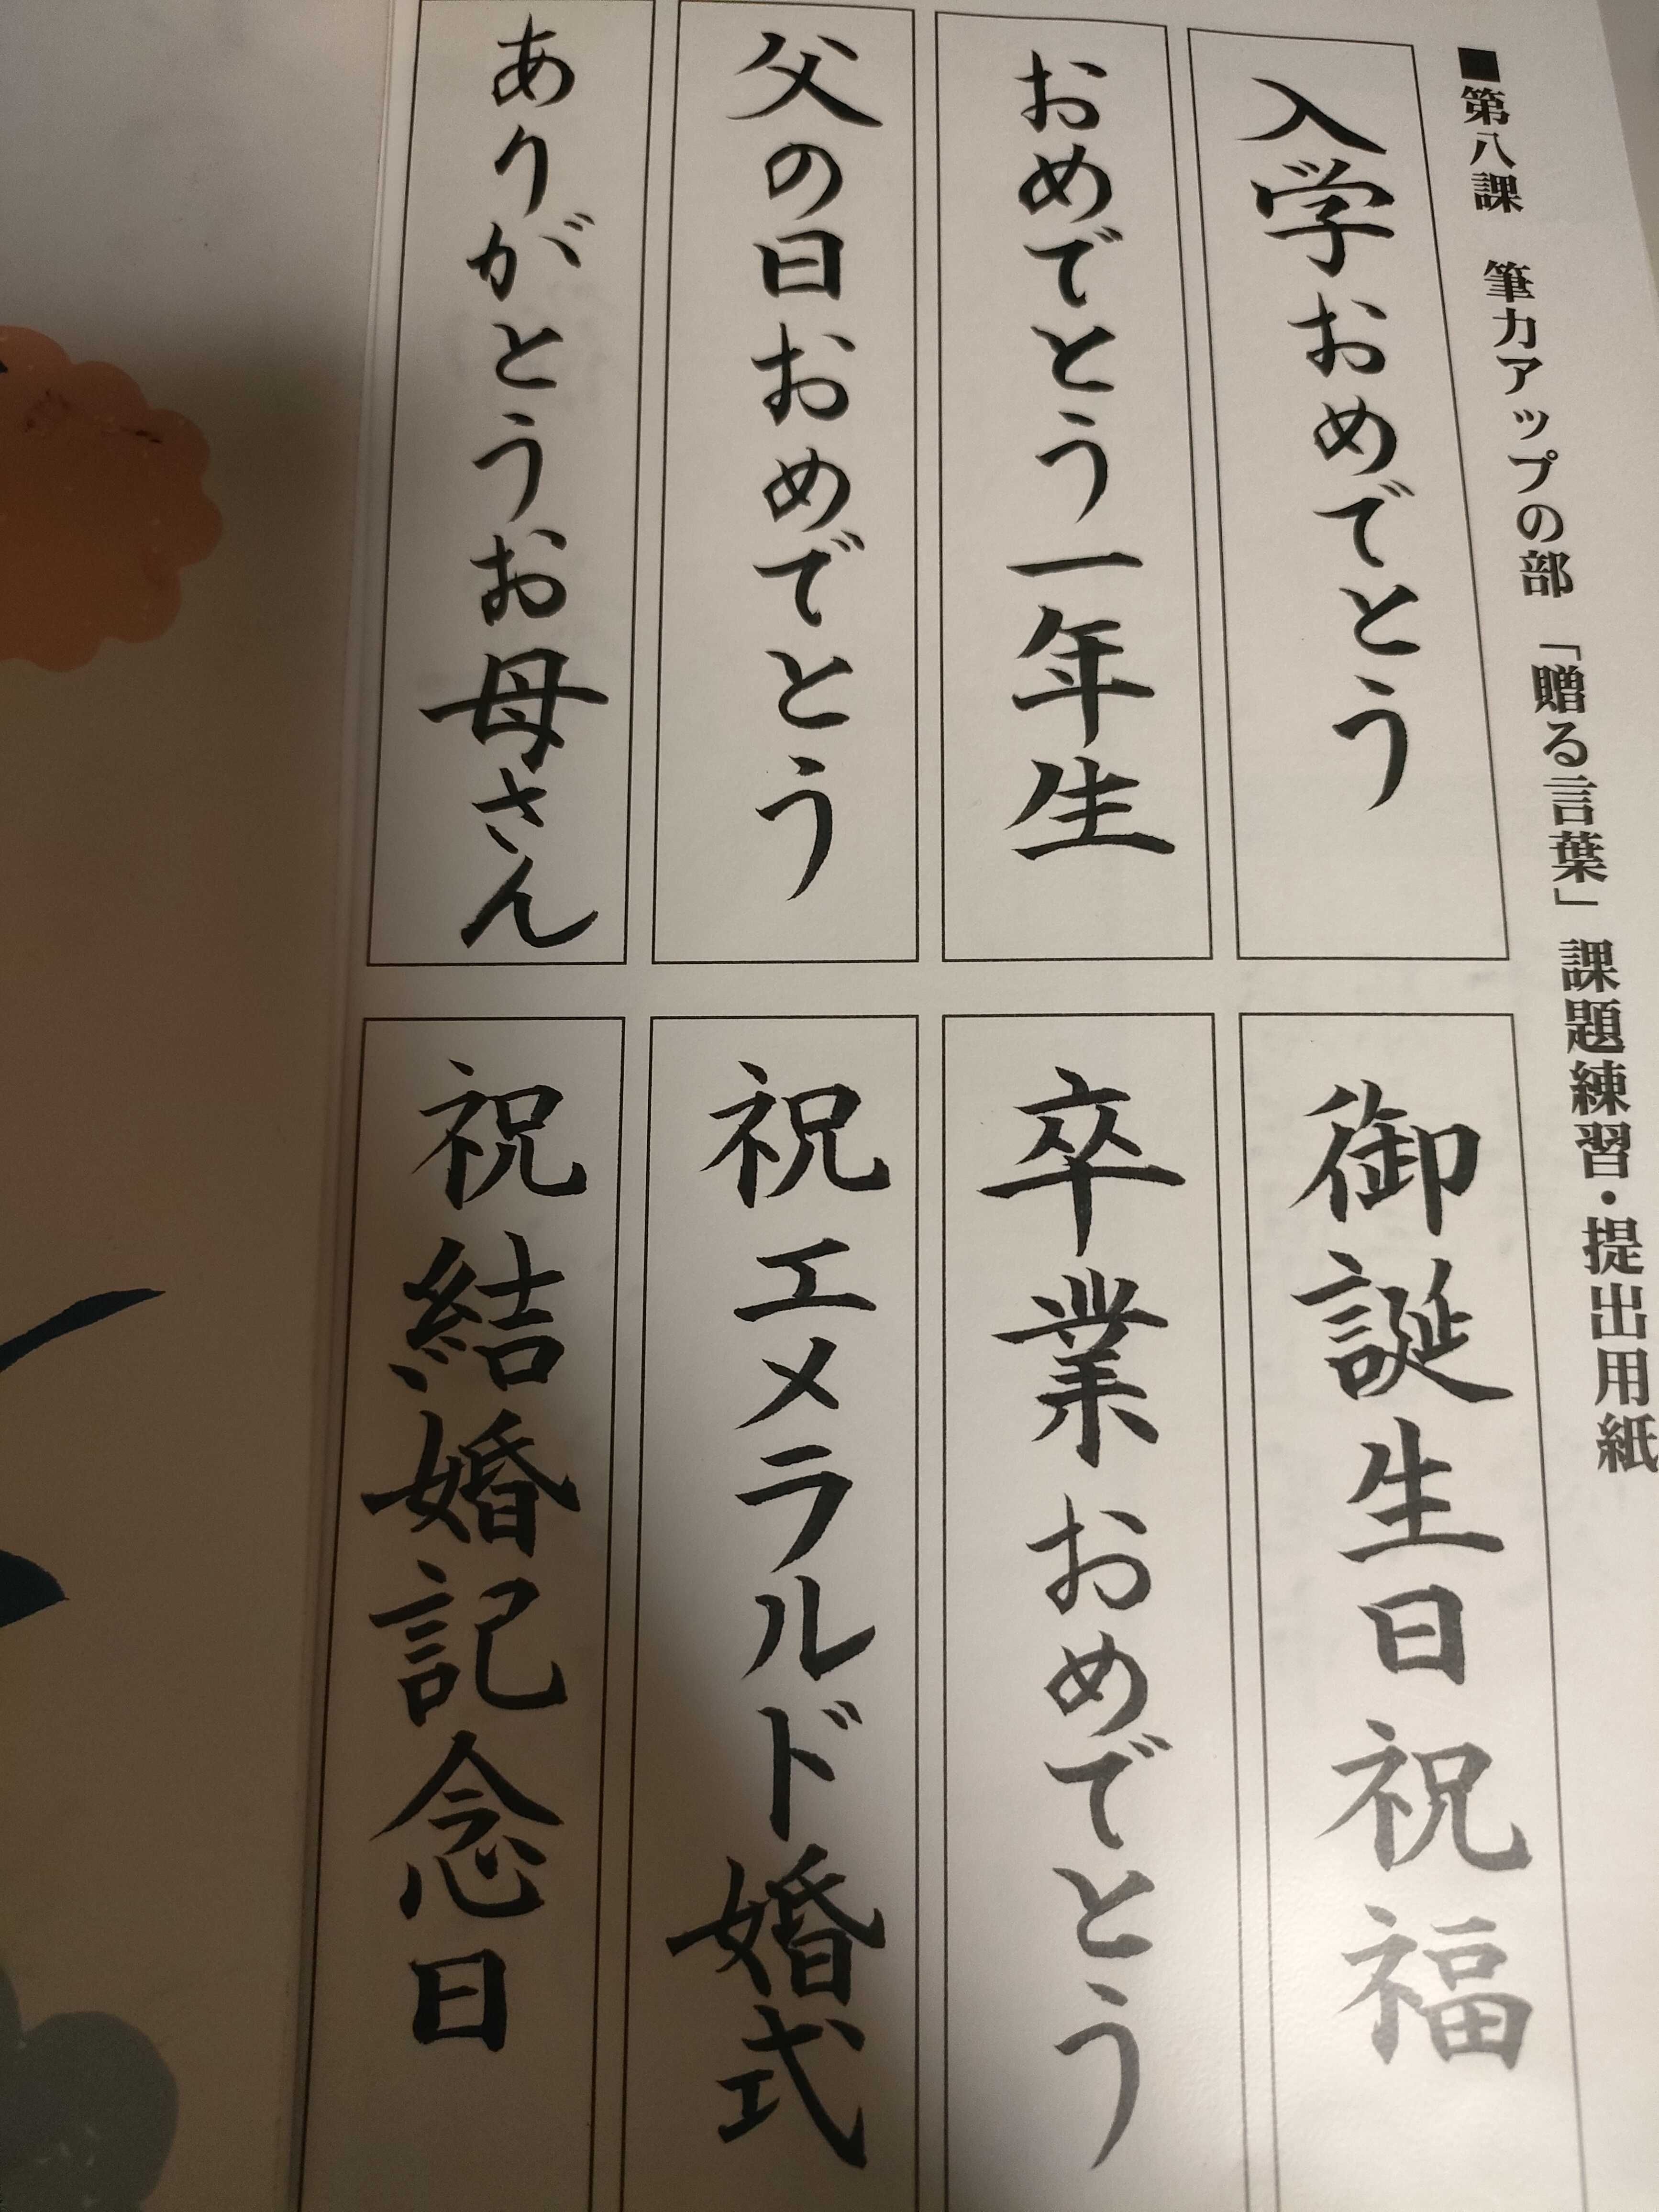 ■第八課　筆力アップの部　「贈る言葉」　課題練習・提出用紙
入学おめでとう
おめでとう一年生
父の日おめでとう
ありがとうお母さん
御誕生日祝福
卒業おめでとう
祝エメラルド婚式
祝結婚記念日